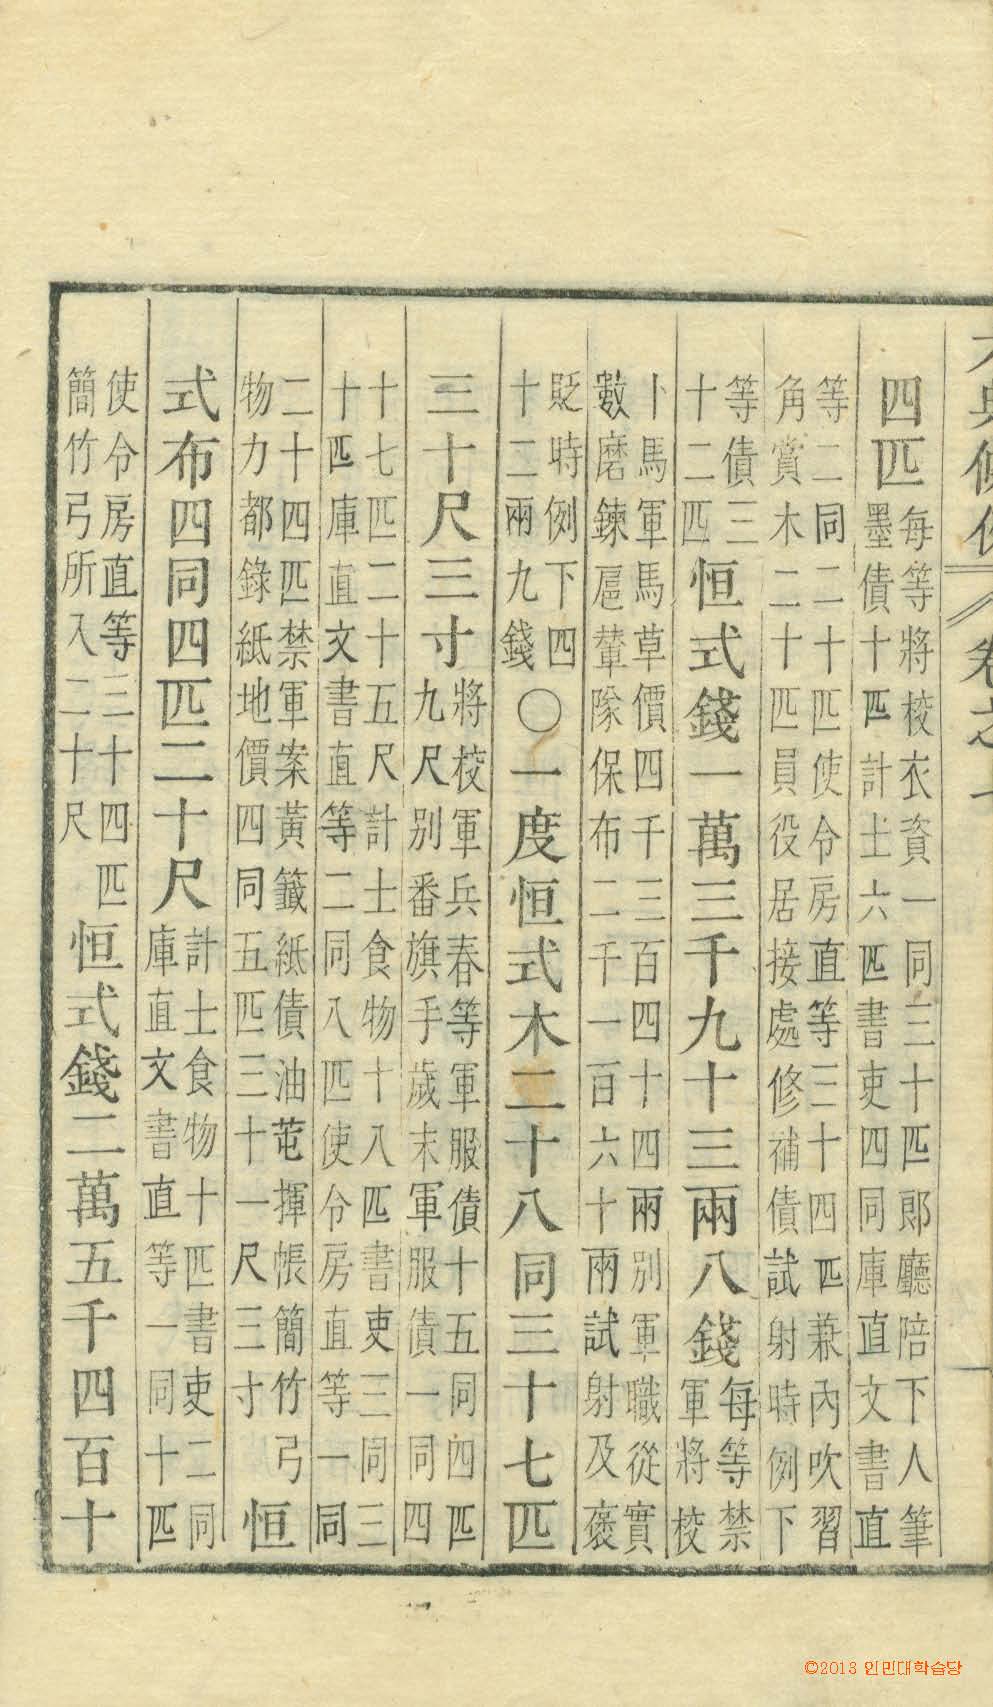 典條例 卷之一
四匹
每等將校衣資一同三十匹郞廳陪下人筆
墨債十匹計士六匹書吏四同庫直文書直
等二同二十匹使令房直等三十四匹兼內吹習
角賞木二十匹員役居接處修補債試射時例下
等債三
十二匹
恒式錢一萬三千九十三兩八錢
每等禁
軍將校
卜馬軍馬草價四千三百四十四兩別軍職從實
數磨鍊扈輦隊保布二千一百六十兩試射及褒
貶時例下四
十二兩九錢
〇一度恒式木二十八同三十七匹
三十尺三寸
將校軍兵春等軍服債十五同四匹
九尺別番旗手歲末軍服債一同四
十七匹二十五尺計士食物十八匹書吏三同三
十匹庫直文書直等二同八匹使令房直等一同
二十四匹禁軍案黃籤紙債油芚揮帳簡竹弓
物力都錄紙地價四同五匹三十一尺三寸
恒
式布四同四匹二十尺
計士食物十匹書吏二同
庫直文書直等一同十匹
使令房直等三十四匹
簡竹弓所入二十尺
恒式錢二萬五千四百十
©2013 인민대학습당